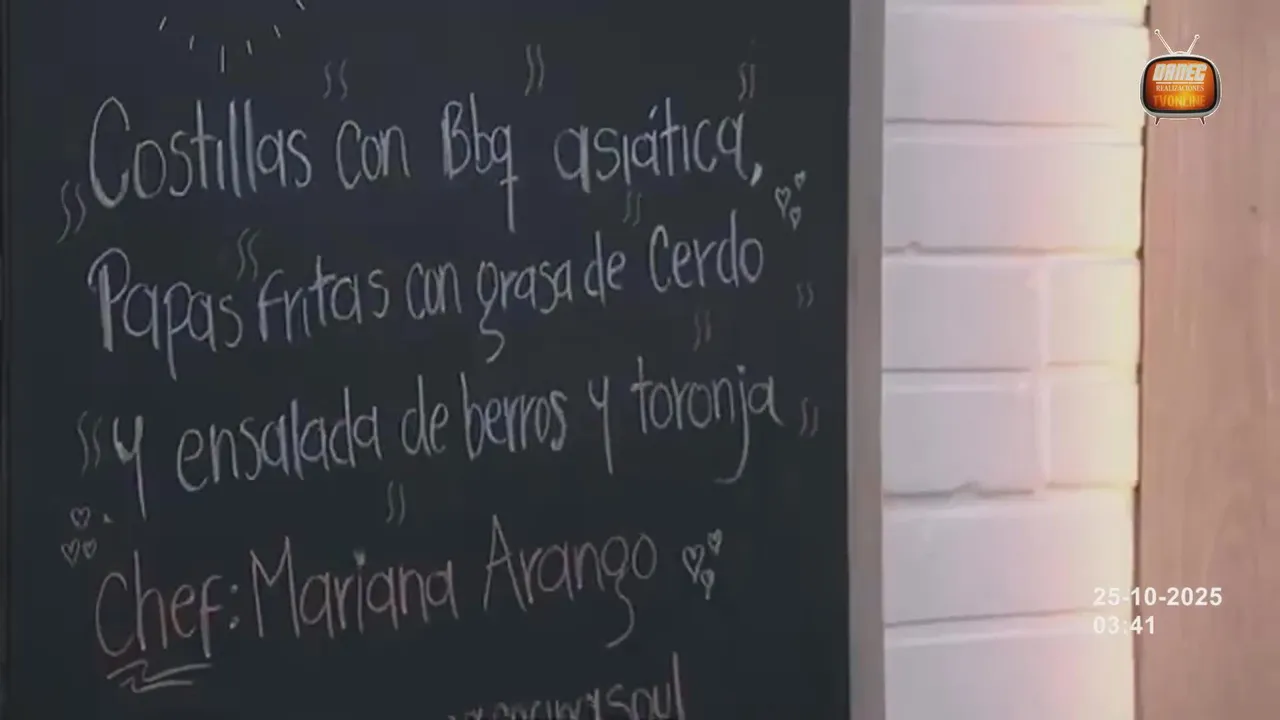 Costillas con Bbq asiática,
Papas fritas con grasa de Cerdo
y ensalada de berros y toronja
Chef: Mariana Arango
DANEC
REALIZACIONES
TV ONLINE
25-10-2025
03:41